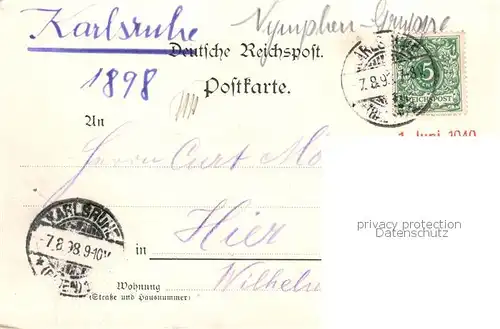 Karlsruhe Nymphen-Gruppe
Deutsche Reichspost.
1898
Postkarte.
KARLSRUHE
7.8.98
5
REICHSPOST
An
1. Juni 1940
Herrn Curt
KARLSRUHE
7.8.98.9-10V.
* (BADEN)
privacy protection
Datenschutz
in Hier
Wohnung Wilhelm
(Straße und Hausnummer)